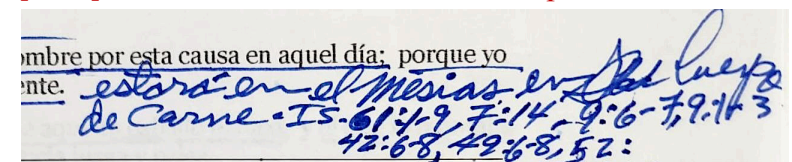 ombre por esta causa en aquel día; porque yo
ente. estará en el Mesias, en Cuerpo
de Carne - Is. 61:1-9, 7:14, 9:6-7, 9:1-3
42:6-8, 49:6-8, 52: